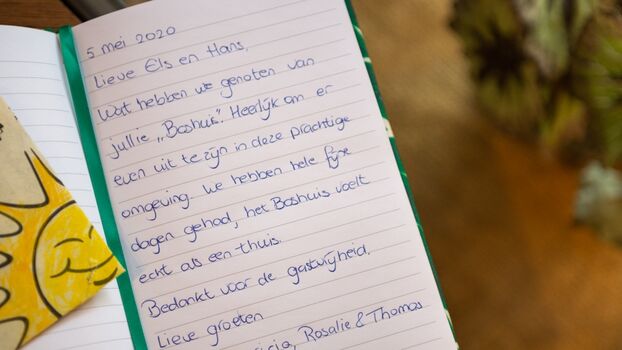 5 mei 2020
Lieve Els en Hans,
Wat hebben we genoten van
jullie „Boshuis". Heerlijk om er
even uit te zijn in deze prachtige
omgeving. We hebben hele fijne
dagen gehad, het Boshuis voelt
echt als een thuis.
Bedankt voor de gastvrijheid.
Lieve groeten
Rosalie & Thomas